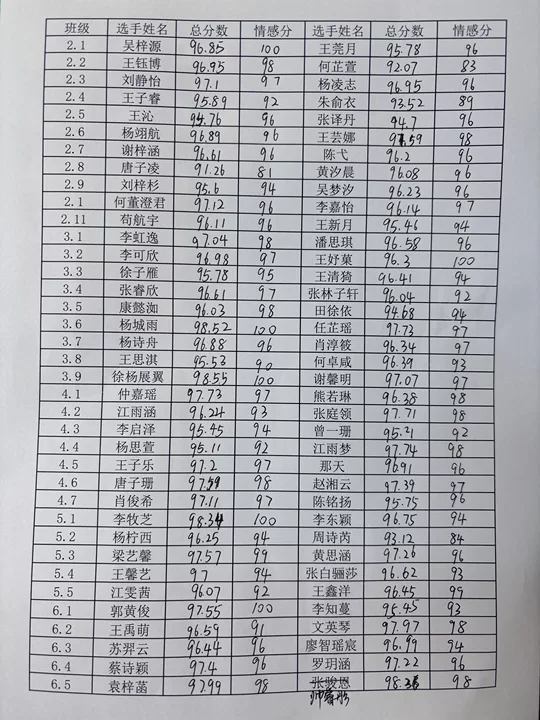 班级 选手姓名 总分数 情感分 选手姓名 总分数 情感分
2.1 吴梓源 96.85 100 王莞月 95.78 96
2.2 王钰博 96.95 98 何芷萱 92.07 83
2.3 刘静怡 97.1 97 杨凌志 96.95 96
2.4 王子睿 95.89 92 朱俞衣 93.52 89
2.5 王沁 94.76 96 张译丹 94.7 96
2.6 杨翊航 96.89 96 王芸娜 97.59 98
2.7 谢梓涵 96.61 96 陈弋 96.2 96
2.8 唐子凌 91.26 81 黄汐晨 96.08 96
2.9 刘梓杉 95.6 94 吴梦汐 96.23 96
2.1 何董澄君 97.12 96 李嘉怡 96.14 97
2.11 荀航宇 96.11 96 王新月 95.46 94
3.1 李虹逸 97.04 98 潘思琪 96.58 96
3.2 李可欣 96.98 97 王妤菓 96.3 100
3.3 徐子雁 95.78 95 王清猗 96.41 94
3.4 张睿欣 96.61 97 张林子轩 96.04 92
3.5 康懿洳 96.03 98 田徐依 94.68 94
3.6 杨城雨 98.52 100 任芷瑶 97.73 97
3.7 杨诗舟 96.88 96 肖淳筱 96.34 97
3.8 王思淇 95.53 90 何卓咸 96.39 93
3.9 徐杨展翼 98.55 100 谢馨明 97.07 97
4.1 仲嘉瑶 97.73 97 熊若琳 96.38 98
4.2 江雨涵 96.24 93 张庭领 97.71 98
4.3 李启泽 95.45 94 曾一珊 95.21 92
4.4 杨思萱 95.11 92 江雨梦 97.74 98
4.5 王子乐 97.2 97 那天 96.91 96
4.6 唐子珊 97.59 98 赵湘云 97.39 97
4.7 肖俊希 97.11 97 陈铭扬 95.75 96
5.1 李牧芝 98.34 100 李东颖 96.75 94
5.2 杨柠西 96.25 94 周诗芮 93.12 84
5.3 梁艺馨 97.57 99 黄思涵 97.26 96
5.4 王馨艺 97 94 张白骊莎 96.62 93
5.5 江雯茜 96.07 92 王鑫洋 96.45 99
6.1 郭黄俊 97.55 100 李知蔓 95.45 93
6.2 王禹萌 96.59 91 文英琴 97.97 98
6.3 苏羿云 96.44 96 廖智瑶宸 96.99 94
6.4 蔡诗颖 97.4 96 罗玥涵 97.22 96
6.5 袁梓菡 97.99 98 张骏恩 98.36 98